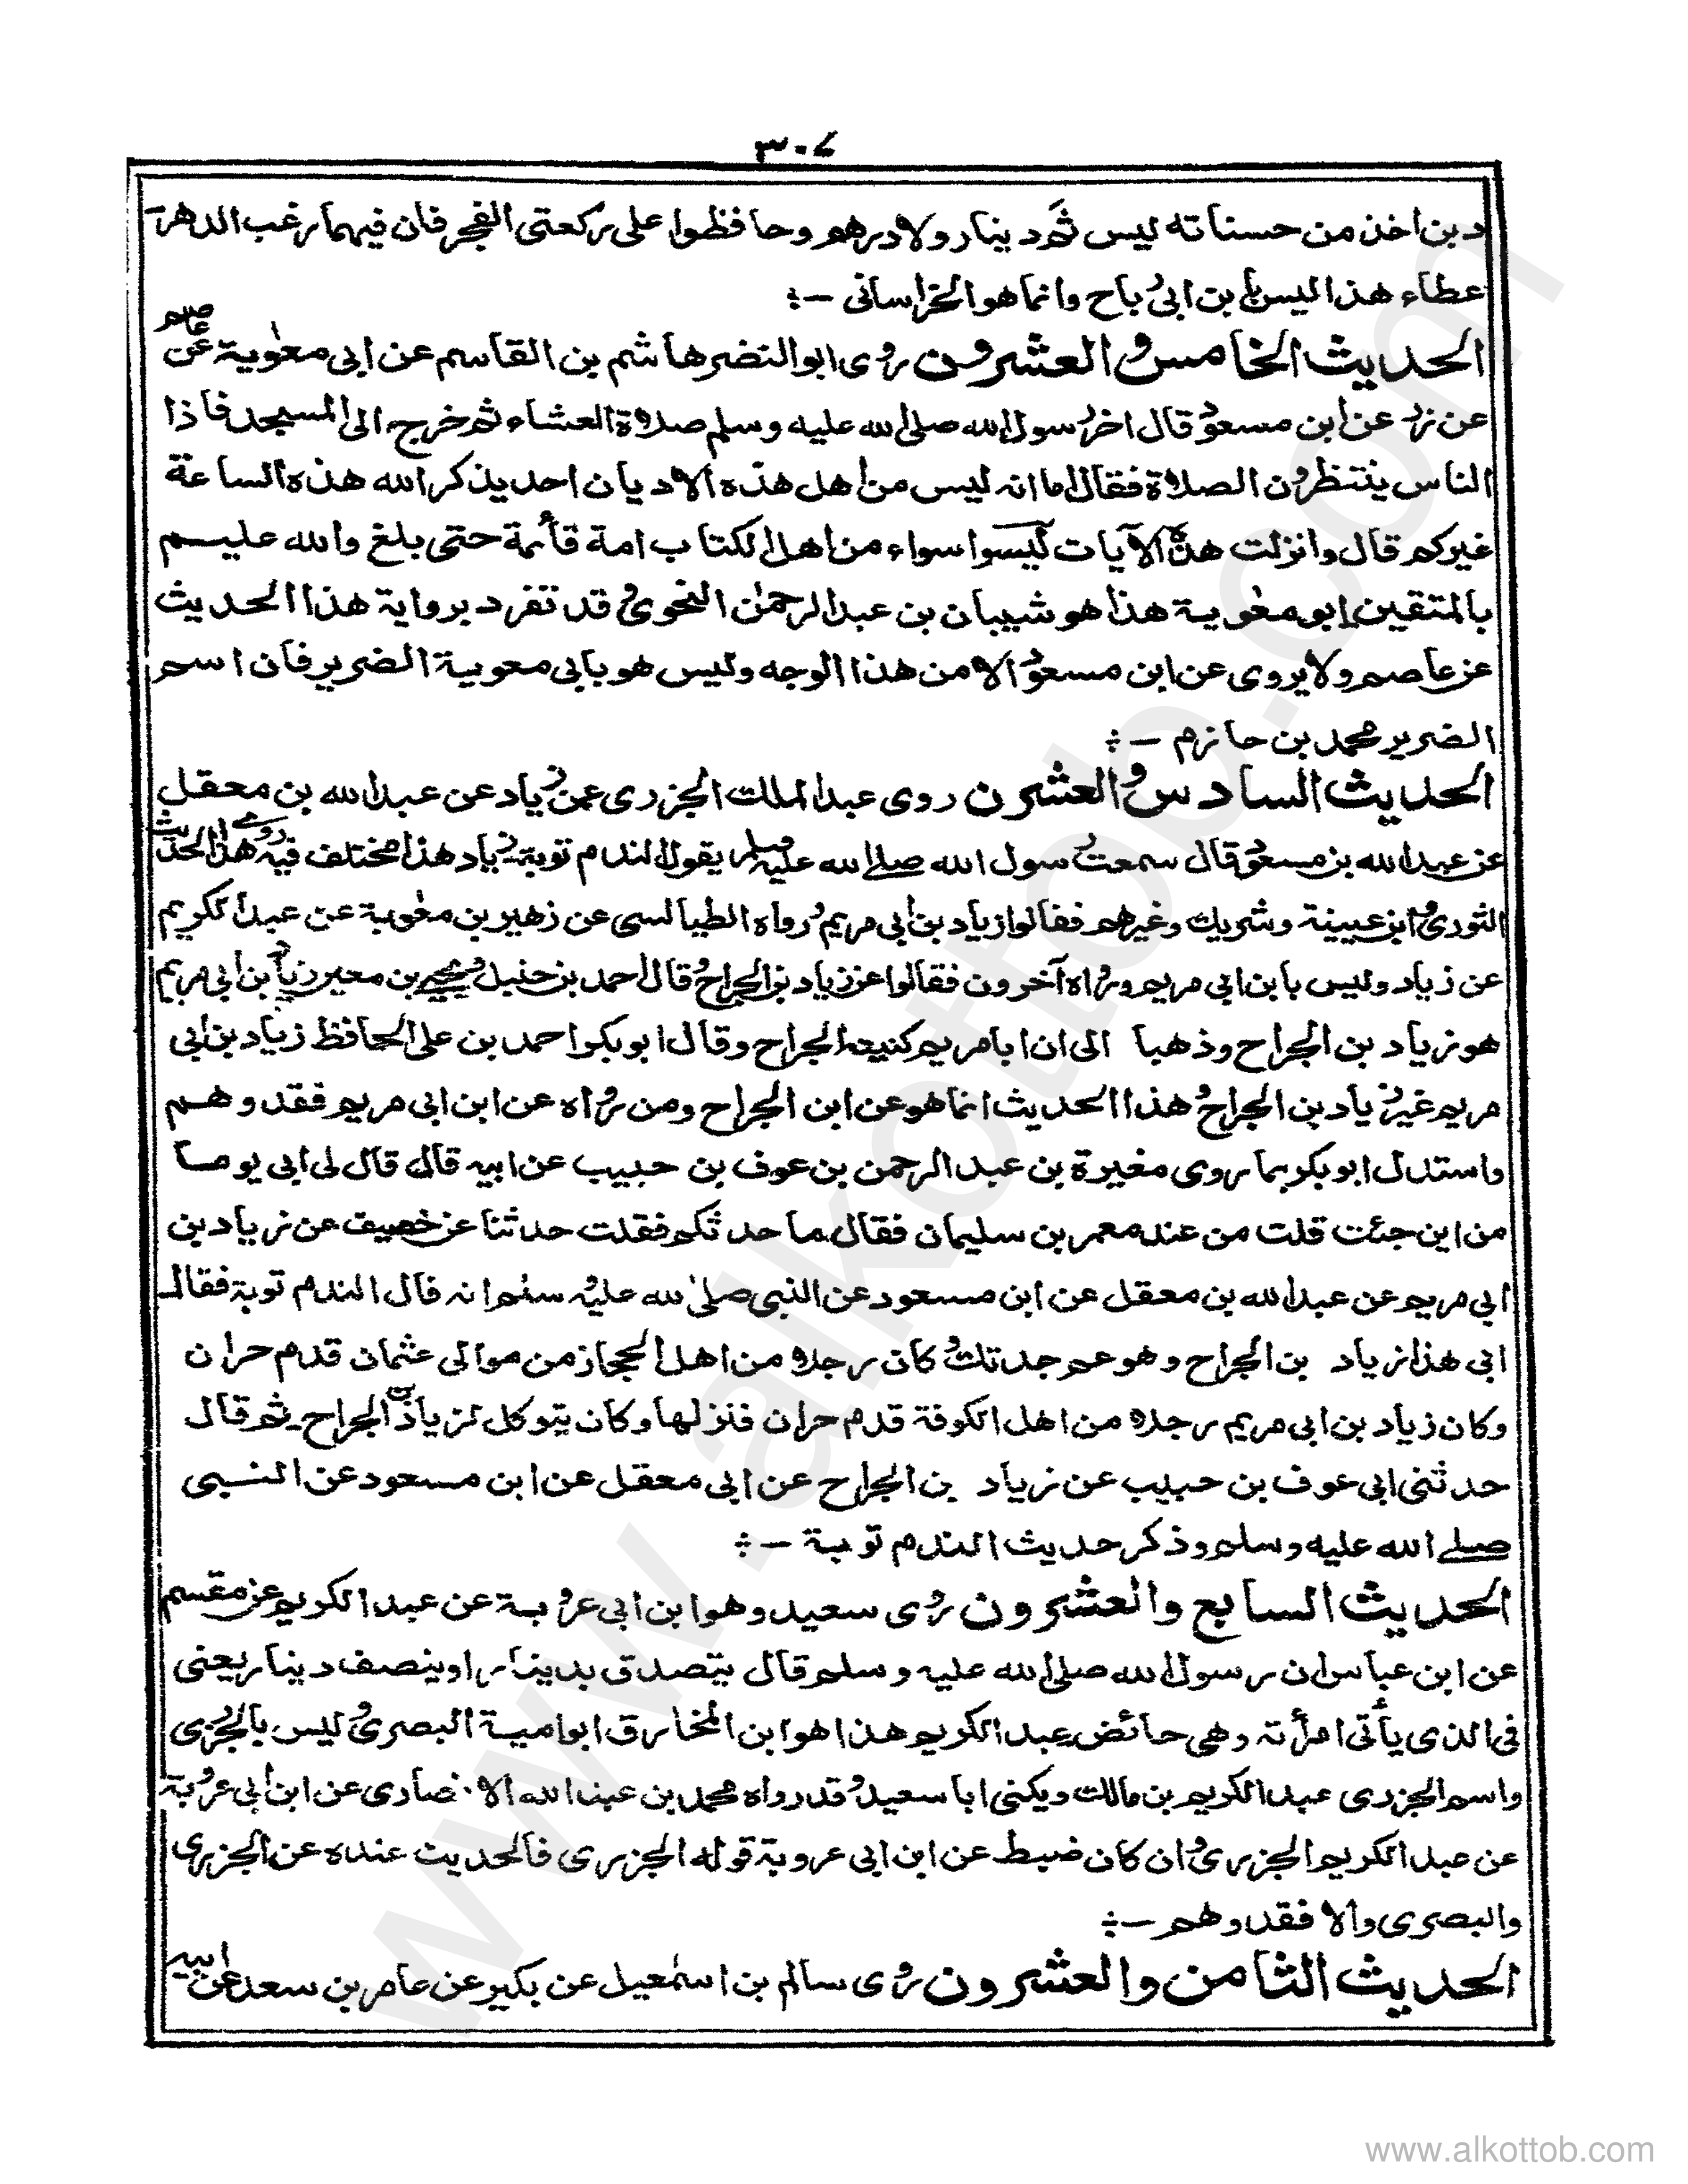 ٣٠٧
دين اخذ من حسناته ليس ثم دينار ولا درهم وحافظوا على ركعتى الفجر فان فيهما رغب الدهر
عطاء هذا ليس بابن ابى رباح وانما هو الخراسانى -:
الحديث الخامس والعشرون روى ابو النضر هاشم بن القاسم عن ابى معٰوية عن عاصم
عن زر عن ابن مسعود قال اخر رسول الله صلى الله عليه وسلم صلاة العشاء ثم خرج الى المسجد فاذا
الناس ينتظرون الصلاة فقال اما انه ليس من اهل هذه الاديان احد يذكر الله هذه الساعة
غيركم قال وانزلت هذه الآيات ليسوا سواء من اهل الكتاب امة قائمة حتى بلغ والله عليم
بالمتقين ابو معٰوية هذا هو شيبان بن عبد الرحمٰن النحوى وقد تفرد برواية هذا الحديث
عن عاصم ولا يروى عن ابن مسعود الا من هذا الوجه وليس هو بابى معوية الضرير فان اسم
الضرير محمد بن حازم -:
الحديث السادس والعشرن روى عبد الملك الجزرى عن زياد عن عبد الله بن معقل
عن عبد الله بن مسعود قال سمعت رسول الله صلے الله عليه وسلم يقول الندم توبة زياد هذا مختلف فيه روے هذا الحديث
الثورى وابن عيينة وشريك وغيرهم فقالوا زياد بن ابى مريم ورواه الطيالسى عن زهير بن معٰوية عن عبد الكريم
عن زياد وليس بابن ابى مريم ورواه آخرون فقالوا عن زياد بن الجراح وقال احمد بن حنبل ويحيے بن معين زياد بن ابى مريم
هو زياد بن الجراح وذهبا الى ان ابا مريم كنيته الجراح وقال ابو بكر احمد بن على الحافظ زياد بن ابى
مريم غير زياد بن الجراح وهذا الحديث انما هو عن ابن الجراح ومن رواه عن ابن ابى مريم فقد وهم
واستدل ابو بكر بما روى مغيرة بن عبد الرحمن بن عوف بن حبيب عن ابيه قال قال لى ابى يوما
من اين جئت قلت من عند معمر بن سليمان فقال ما حدثكم فقلت حدثنا عن خصيف عن زياد بن
ابى مريم عن عبد الله بن معقل عن ابن مسعود عن النبى صلى الله عليه وسلم انه قال الندم توبة فقال
ابى هذا زياد بن الجراح وهو عم جدتك وكان رجلا من اهل الحجاز من موالى عثمان قدم حران
وكان زياد بن ابى مريم رجلا من اهل الكوفة قدم حران فنزلها وكان يتوكل لزياد بن الجراح ثم قال
حدثنى ابى عوف بن حبيب عن زياد بن الجراح عن ابى معقل عن ابن مسعود عن النبى
صلے الله عليه وسلم وذكر حديث الندم توبة -:
الحديث السابع والعشرون روى سعيد وهو ابن ابى عروبة عن عبد الكريم عن مقسم
عن ابن عباس ان رسول الله صلى الله عليه وسلم قال يتصدق بدينار او بنصف دينار يعنى
فى الذى يأتى امرأته وهى حائض عبد الكريم هذا هو ابن المخارق ابو امية البصرى وليس بالجزرى
واسم الجزرى عبد الكريم بن مالك ويكنى ابا سعيد وقد رواه محمد بن عبد الله الانصارى عن ابن ابى عروبة
عن عبد الكريم الجزرى وان كان ضبط عن ابن ابى عروبة قوله الجزرى فالحديث عنده عن الجزرى
والبصرى والا فقد وهم -:
الحديث الثامن والعشرون روى سالم بن اسمٰعيل عن بكير عن عامر بن سعد عن ابيه
www.alkottob.com
www.alkottob.com